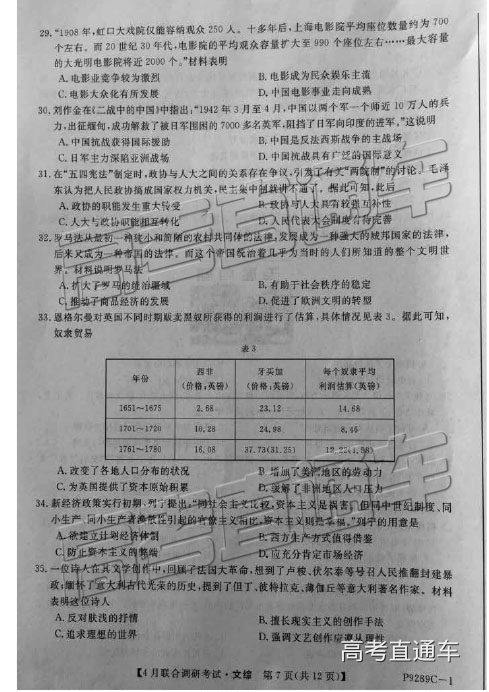 29.“1908年,虹口大戏院仅能容纳观众250人。十多年后,上海电影院平均座位数量约为700
个左右。而20世纪30年代,电影院的平均观众容量扩大至990个座位左右……最大容量
的大光明电影院将近2000个。”材料表明
A.电影业竞争较为激烈 B.电影成为民众娱乐主流
C.电影大众化有所发展 D.中国电影事业走向成熟
30.刘作金在《二战中的中国》中指出:“1942年3月至4月,中国以两个军一个师近10万人的兵
力,出征缅甸,成功解救了被日军围困的7000多名英军,阻挡了日军向印度的进军。”这说明
A.中国抗战获得国际援助 B.中国是反法西斯战争的主战场
C.日军主力深陷亚洲战场 D.中国抗战具有广泛的国际意义
31.在“五四宪法”制定时,政协与人大之间的关系存在争议,引发了有关“两院制”的讨论。毛泽
东认为把人民政协搞成国家权力机关,民主集中制就讲不通了。据此可知,此后
A.政协的职能发生重大转变 B.政协与人大具有较强互补性
C.人大与政协职能相互转化 D.人民代表大会制度有待完善
32.罗马法从最初一种狭小和简陋的农村共同体的法律,发展成为一种强大的城邦国家的法律,
后来又成为一种帝国的法律。而这个帝国统治着几乎为当时的人们所知道的整个文明世
界。材料说明罗马法
A.扩大了罗马的统治疆域 B.有助于社会秩序的稳定
C.推动了商品经济的发展 D.促进了欧洲文明的转型
33.恩格尔曼对英国不同时期贩卖黑奴所获得的利润进行了估算,具体情况见表3。据此可知,
奴隶贸易
表3
年份 西非(价格:英镑) 牙买加(价格:英镑) 每个奴隶平均利润估算(英镑)
1651~1675 2.68 23.12 14.68
1701~1720 10.28 24.98 8.46
1761~1780 16.08 37.73(31.25)
A.改变了各地人口分布的状况 B.增加了美洲地区的劳动力
C.为英国提供了资本原始积累 D.缓解了非洲地区人口压力
34.新经济政策实行初期,列宁提出:“同社会主义比较,资本主义是祸害。但同中世纪制度、同
小生产、同小生产者涣散性引起的官僚主义比较,资本主义则是幸福。”列宁的用意是
A.欲建立计划经济体制 B.西方生产方式值得借鉴
C.防止资本主义的弊端 D.应充分肯定市场经济
35.一位诗人在其文学创作中,回顾了法国大革命,想到了卢梭、伏尔泰等号召人民推翻封建暴
政;缅怀了意大利古代光荣的历史,提到了但丁、彼特拉克、薄伽丘等意大利著名作家。材料
表明这位诗人
A.反对肤浅的抒情 B.擅长现实主义的创作手法
C.追求理想的世界 D.强调文艺创作应遵从自然
【4月联合调研考试·文综 第7页(共12页)】 P9289C—1
高考直通车
高考直通车
高考直通车